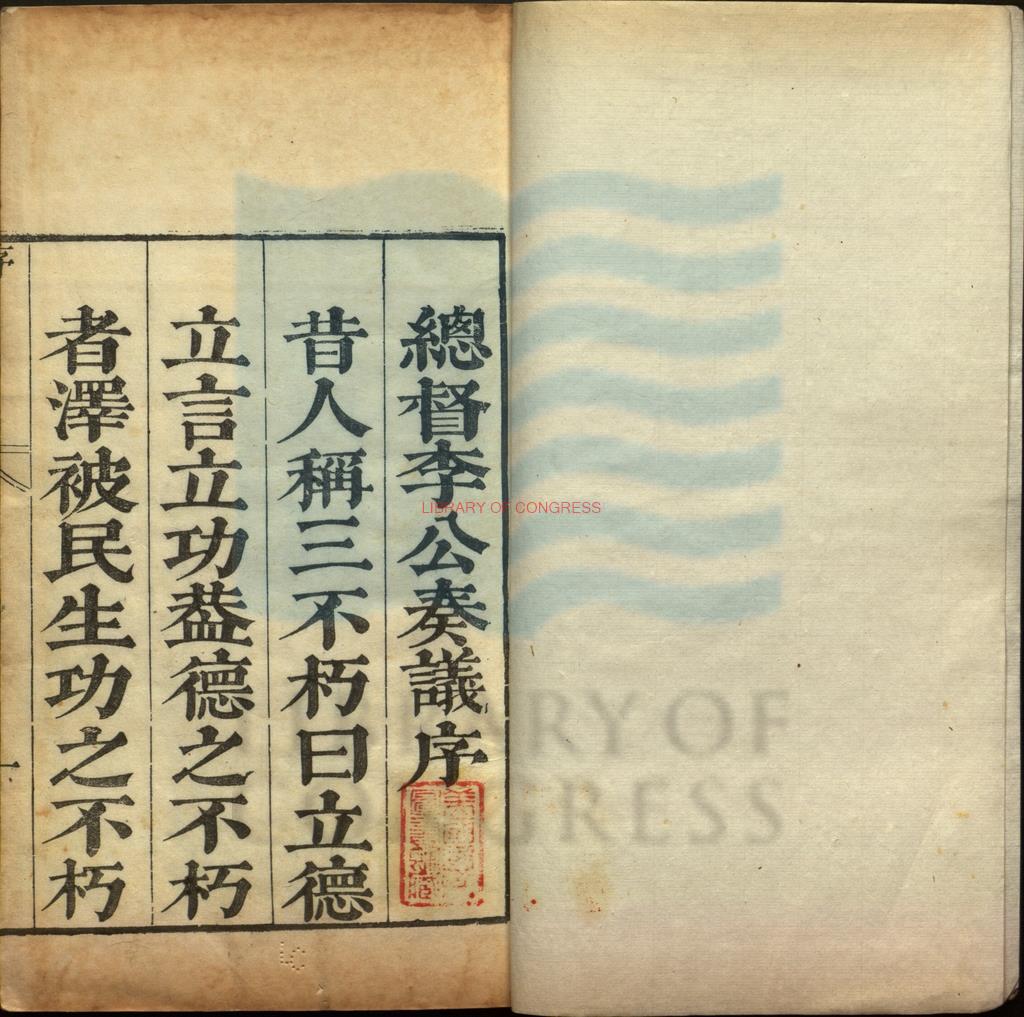 總督李公奏議序
昔人稱三不朽曰立德
立言立功葢德之不朽
者澤被民生功之不朽
序
一
LIBRARY OF CONGRESS